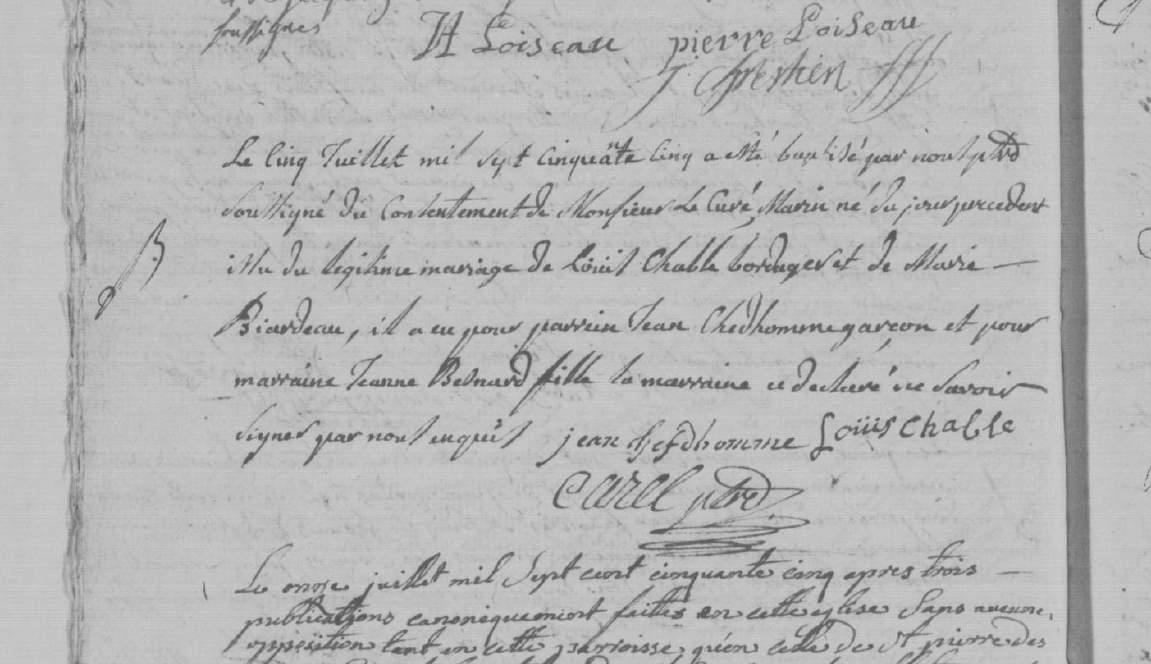 soussignés
H Loiseau pierre Loiseau
Le Cinq Juillet mil sept cinquāte Cinq a esté baptisé par nous ptre
soussigné du Consentement de Monsieur Le Curé Marin né du jour precedent
issu du legitime mariage de Loüis Chable bordager et de Marie
Biardeau, il a eu pour parrein Jean Chedhomme garçon et pour
marraine Jeanne Besnard fille la marraine a declaré ne savoir
signer par nous enquis jean chefdhomme Loüis Chable
CAREL ptre
Le onze juillet mil sept cent cinquante cinq apres trois
publications canoniquement faittes en cette eglise sans aucune
opposition tant en cette parroisse qu'en celle de St pierre des